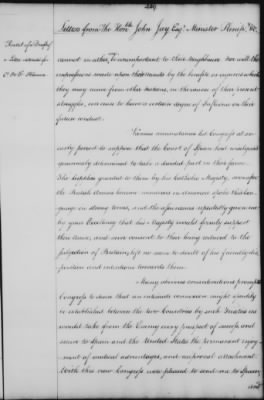 Letters from The Honble John Jay Esqr Minister Plenipo. &c.
Recital of a Draft of
a Letter intended for
Ct. de Florida
cannot in either, be unimportant to their Neighbours. Nor will the
impressions made upon their minds by the benefits or injuries which
they may receive from other nations, in the course of their present
struggles, cease to have a certain degree of Influence on their
future conduct.
Various circumstances led Congress at an
early period to suppose that the Court of Spain had wisely and
generously determined to take a decided part in their favor.
The supplies granted to them by his Catholic Majesty,
the British Arms
on strong terms, and the assurances repeatedly given me
by your Excellency that his Majesty would firmly support
their cause, and never consent to their being reduced to the
subjection of Britain, left no room to doubt of his friendly dis-
position and intentions towards them.
Many obvious considerations prompted
Congress to desire that an intimate connexion might speedily
be established between the two Countries by such treaties as
would take from the Enemy every prospect of success and
secure to Spain and the United States the permanent enjoy-
ment of mutual advantages, and reciprocal attachment.
With this view Congress were pleased to send me to Spain,
and